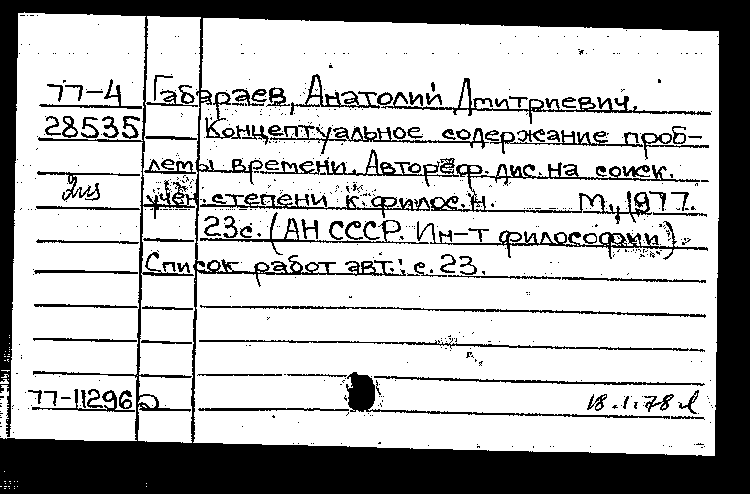 77-4 Габараев, Анатолий Дмитриевич.
28535 Концептуальное содержание проб-
лемы времени. Автореф. дис. на соиск.
учен. степени к. филос. н. М., 1977.
23с. (АН СССР. Ин-т философии).
Список работ авт.: с. 23.
77-11296 18.1.78